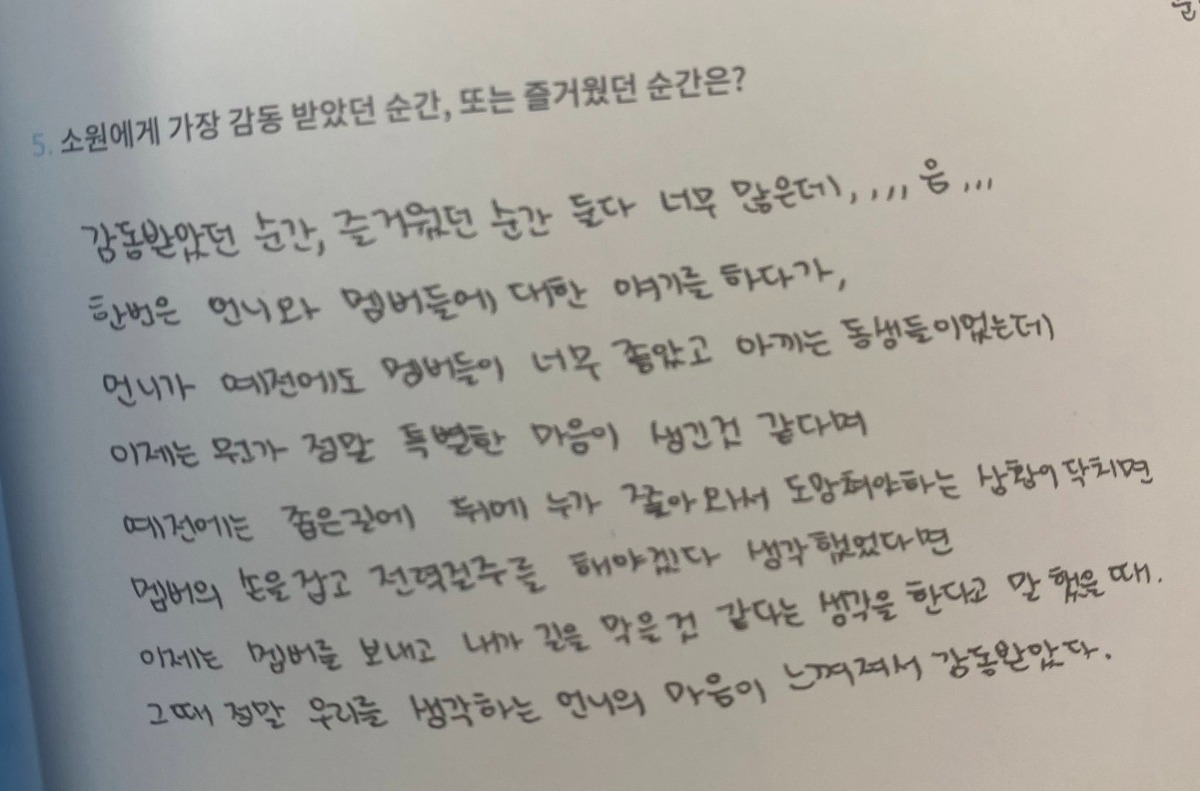 5. 소원에게 가장 감동 받았던 순간, 또는 즐거웠던 순간은?
감동받았던 순간, 즐거웠던 순간 둘다 너무 많은데,,,, 음...
한번은 언니와 멤버들에 대한 얘기를 하다가,
언니가 예전에도 멤버들이 너무 좋았고 아끼는 동생들이었는데
이제는 뭔가 정말 특별한 마음이 생긴것 같다며
예전에는 좁은길에 뒤에 누가 쫓아와서 도망쳐야하는 상황이 닥치면
멤버의 손을잡고 전력질주를 해야겠다 생각했었다면
이제는 멤버를 보내고 내가 길을 막을것 같다는 생각을 한다고 말했을때.
그때 정말 우리를 생각하는 언니의 마음이 느껴져서 감동받았다.